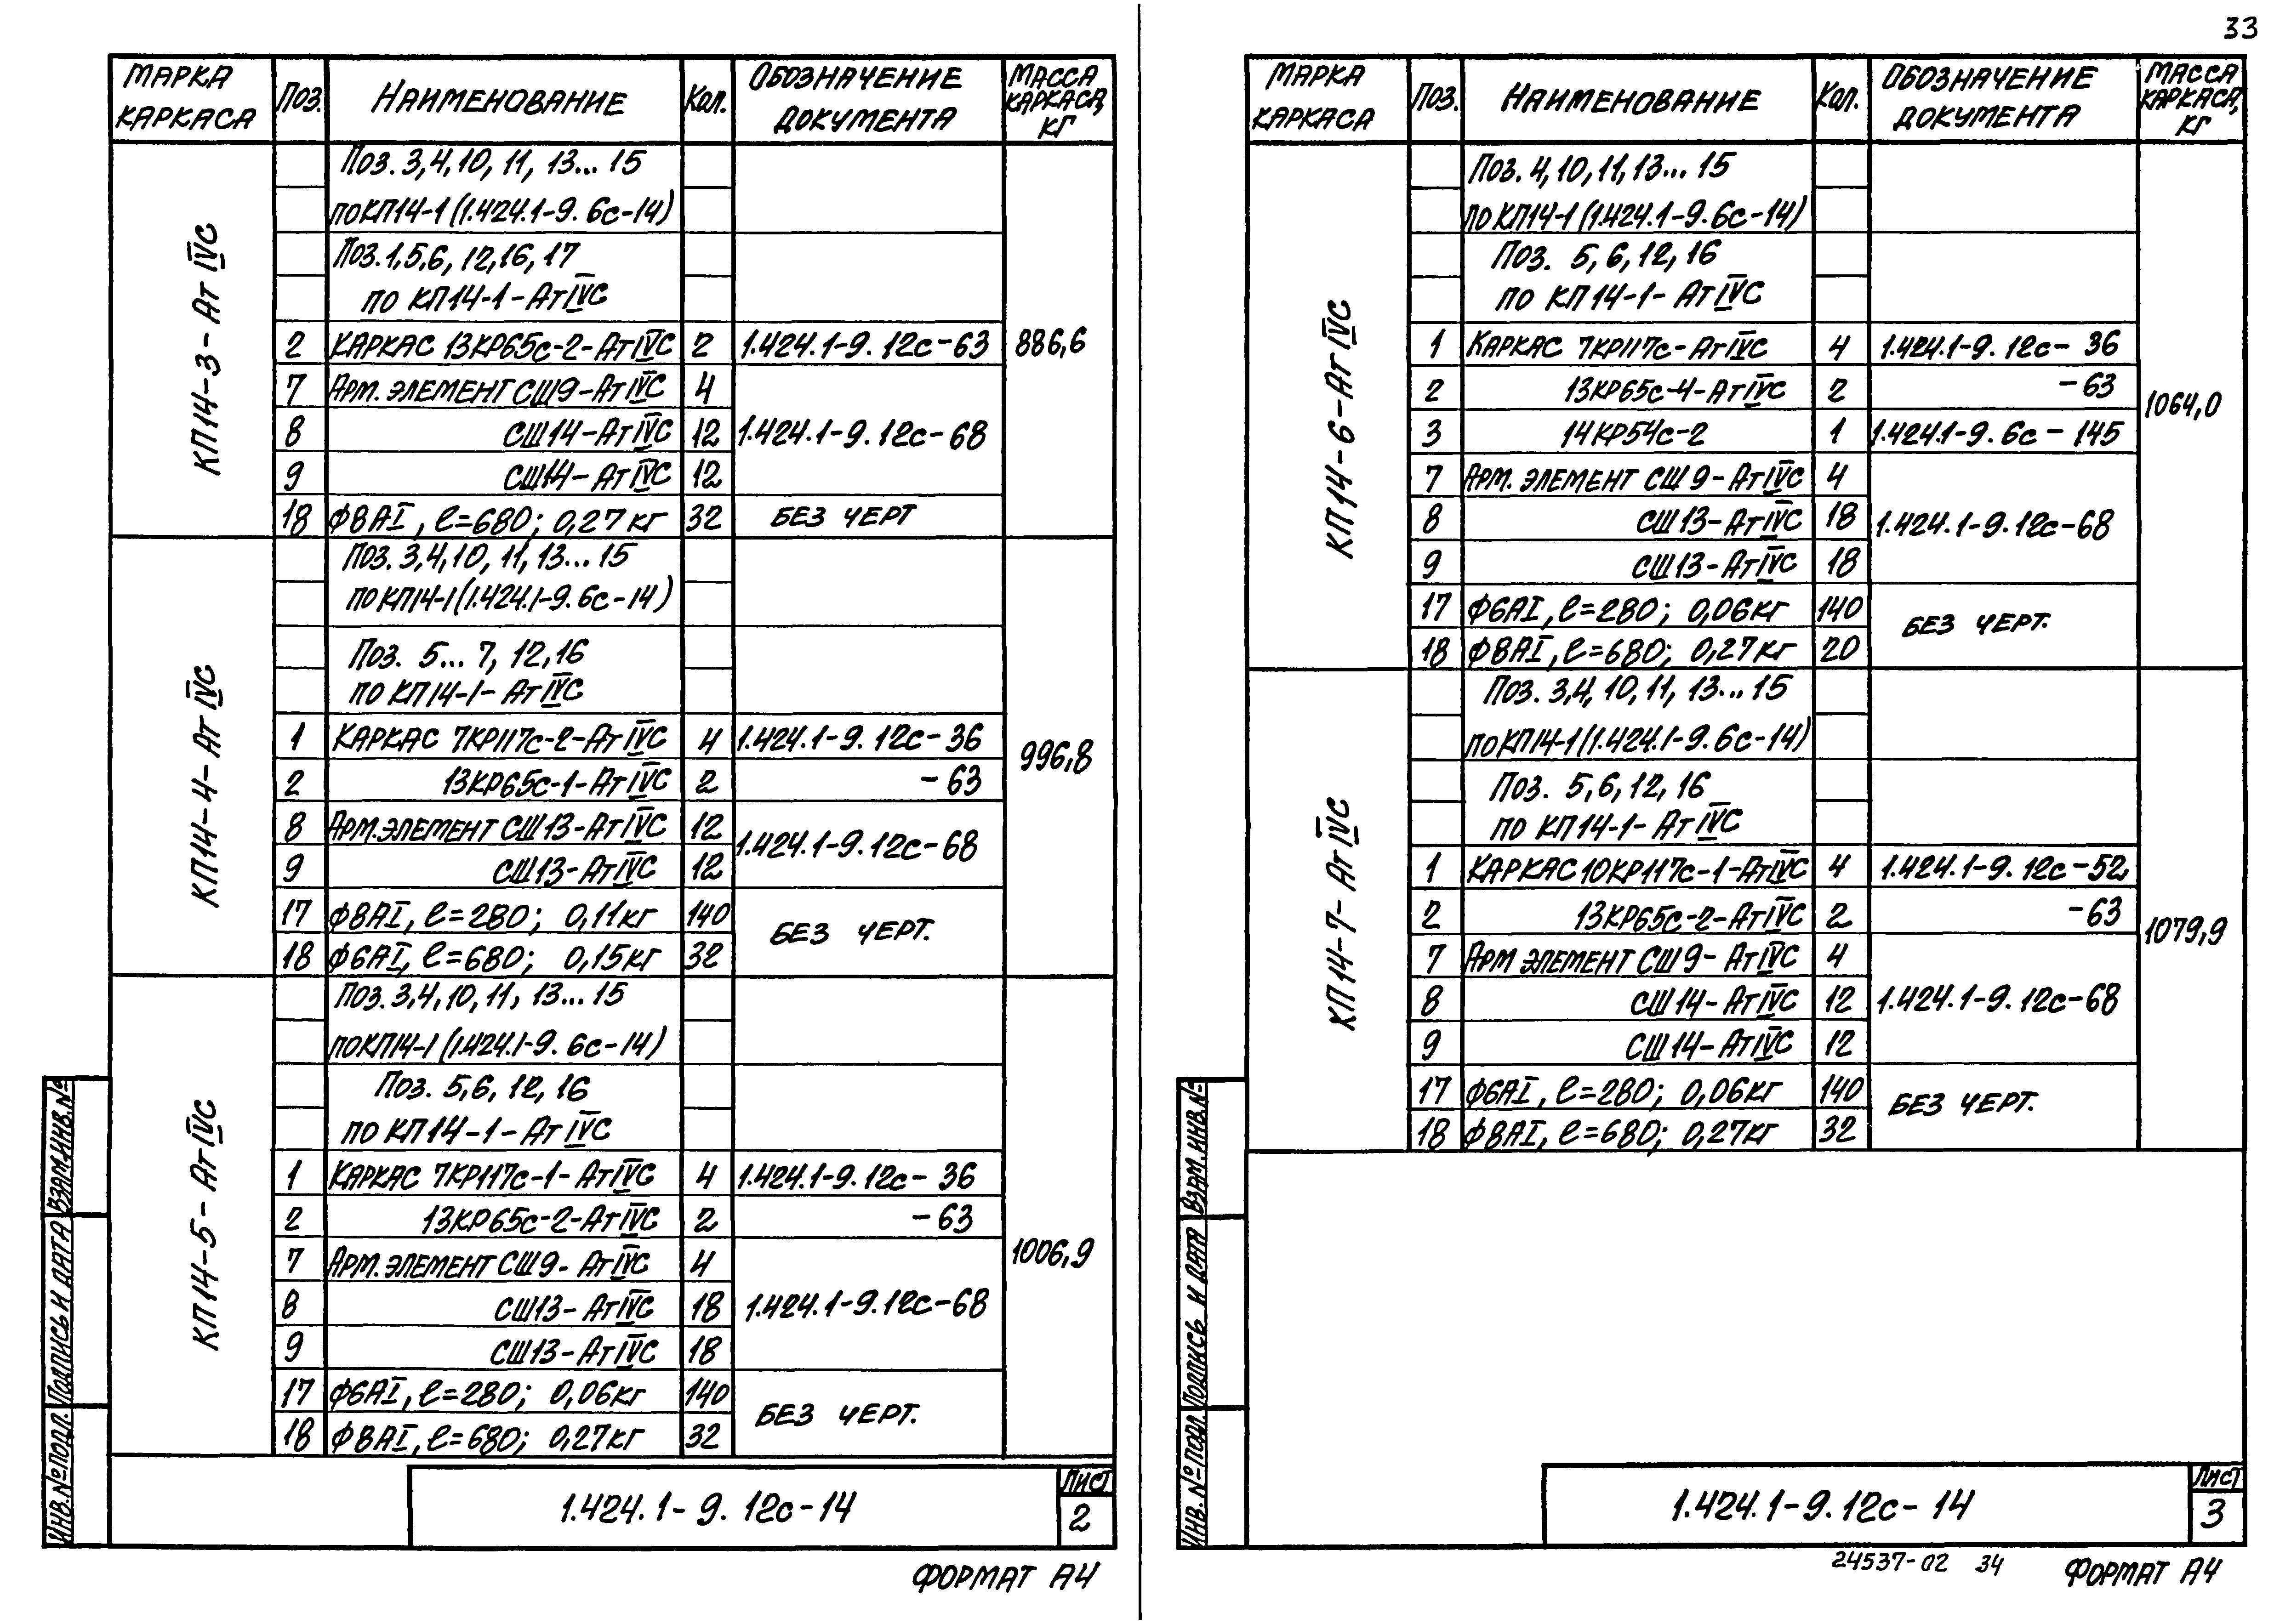 33
МАРКА КАРКАСА Поз. НАИМЕНОВАНИЕ Кол. ОБОЗНАЧЕНИЕ ДОКУМЕНТА МАССА КАРКАСА, КГ
КП14-3-АтIVС
Поз. 3,4,10, 11, 13... 15
по КП14-1 (1.424.1-9. 6с-14)
Поз. 1,5,6, 12,16, 17
по КП14-1-АтIVС
2 КАРКАС 13КР65с-2-АтIVС 2 1.424.1-9. 12с-63 886,6
7 АРМ. ЭЛЕМЕНТ СШ9-АтIVС 4
8 СШ14-АтIVС 12 1.424.1-9. 12с-68
9 СШ14-АтIVС 12
18 Ф8АI, ℓ=680; 0,27кг 32 БЕЗ ЧЕРТ
КП14-4-АтIVС
Поз. 3,4,10, 11, 13... 15
по КП14-1 (1.424.1-9. 6с-14)
Поз. 5... 7, 12,16
по КП14-1-АтIVС
1 КАРКАС 7КР117с-2-АтIVС 4 1.424.1-9. 12с-36 996,8
2 13КР65с-1-АтIVС 2 -63
8 АРМ. ЭЛЕМЕНТ СШ13-АтIVС 12 1.424.1-9. 12с-68
9 СШ13-АтIVС 12
17 Ф8АI, ℓ=280; 0,11кг 140 БЕЗ ЧЕРТ.
18 Ф6АI, ℓ=680; 0,15кг 32
КП14-5-АтIVС
Поз. 3,4,10, 11, 13... 15
по КП14-1 (1.424.1-9. 6с-14)
Поз. 5,6, 12, 16
по КП14-1-АтIVС
1 КАРКАС 7КР117с-1-АтIVС 4 1.424.1-9. 12с-36
2 13КР65с-2-АтIVС 2 -63 1006,9
7 АРМ. ЭЛЕМЕНТ СШ9-АтIVС 4
8 СШ13-АтIVС 18 1.424.1-9. 12с-68
9 СШ13-АтIVС 18
17 Ф6АI, ℓ=280; 0,06кг 140 БЕЗ ЧЕРТ.
18 Ф8АI, ℓ=680; 0,27кг 32
ВЗАМ.ИНВ.№
ПОДПИСЬ И ДАТА
ИНВ.№ПОДЛ.
1.424.1-9. 12с-14
Лист
2
ФОРМАТ А4
МАРКА КАРКАСА Поз. НАИМЕНОВАНИЕ Кол. ОБОЗНАЧЕНИЕ ДОКУМЕНТА МАССА КАРКАСА, КГ
КП14-6-АтIVС
Поз. 4,10, 11, 13... 15
по КП14-1 (1.424.1-9. 6с-14)
Поз. 5, 6, 12, 16
по КП14-1-АтIVС
1 КАРКАС 7КР117с-АтIVС 4 1.424.1-9. 12с-36
2 13КР65с-4-АтIVС 2 -63 1064,0
3 14КР54с-2 1 1.424.1-9. 6с-145
7 АРМ. ЭЛЕМЕНТ СШ9-АтIVС 4
8 СШ13-АтIVС 18 1.424.1-9. 12с-68
9 СШ13-АтIVС 18
17 Ф6АI, ℓ=280; 0,06кг 140 БЕЗ ЧЕРТ.
18 Ф8АI, ℓ=680; 0,27кг 20
КП14-7-АтIVС
Поз. 3,4, 10, 11, 13... 15
по КП14-1 (1.424.1-9. 6с-14)
Поз. 5,6, 12, 16
по КП14-1-АтIVС
1 КАРКАС 10КР117с-1-АтIVС 4 1.424.1-9. 12с-52
2 13КР65с-2-АтIVС 2 -63 1079,9
7 АРМ ЭЛЕМЕНТ СШ9-АтIVС 4
8 СШ14-АтIVС 12 1.424.1-9. 12с-68
9 СШ14-АтIVС 12
17 Ф6АI, ℓ=280; 0,06кг 140 БЕЗ ЧЕРТ.
18 Ф8АI, ℓ=680; 0,27кг 32
ВЗАМ.ИНВ.№
ПОДПИСЬ И ДАТА
ИНВ.№ПОДЛ.
1.424.1-9. 12с-14
Лист
3
24537-02 34
ФОРМАТ А4